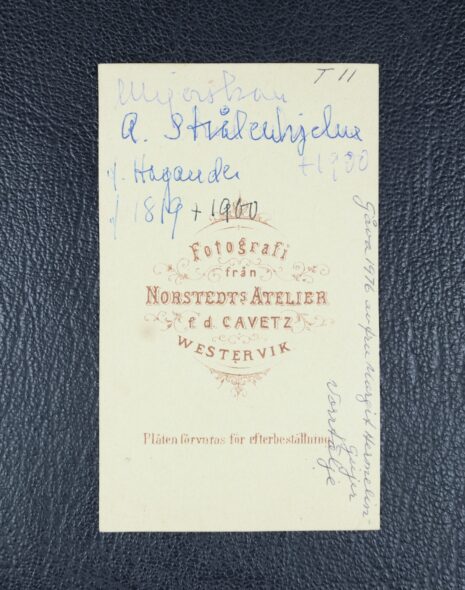 T 11
Majorskan
A. Strålenhjelm
+1900
f. Hagander
f 1819 + 1900
Fotografi
från
NORSTEDTS ATELIER
f. d. CAVETZ
WESTERVIK
Plåten förvaras för efterbeställning
Gåva 1976 av fru Margit Hermelin-
Geijer
Norrtälje